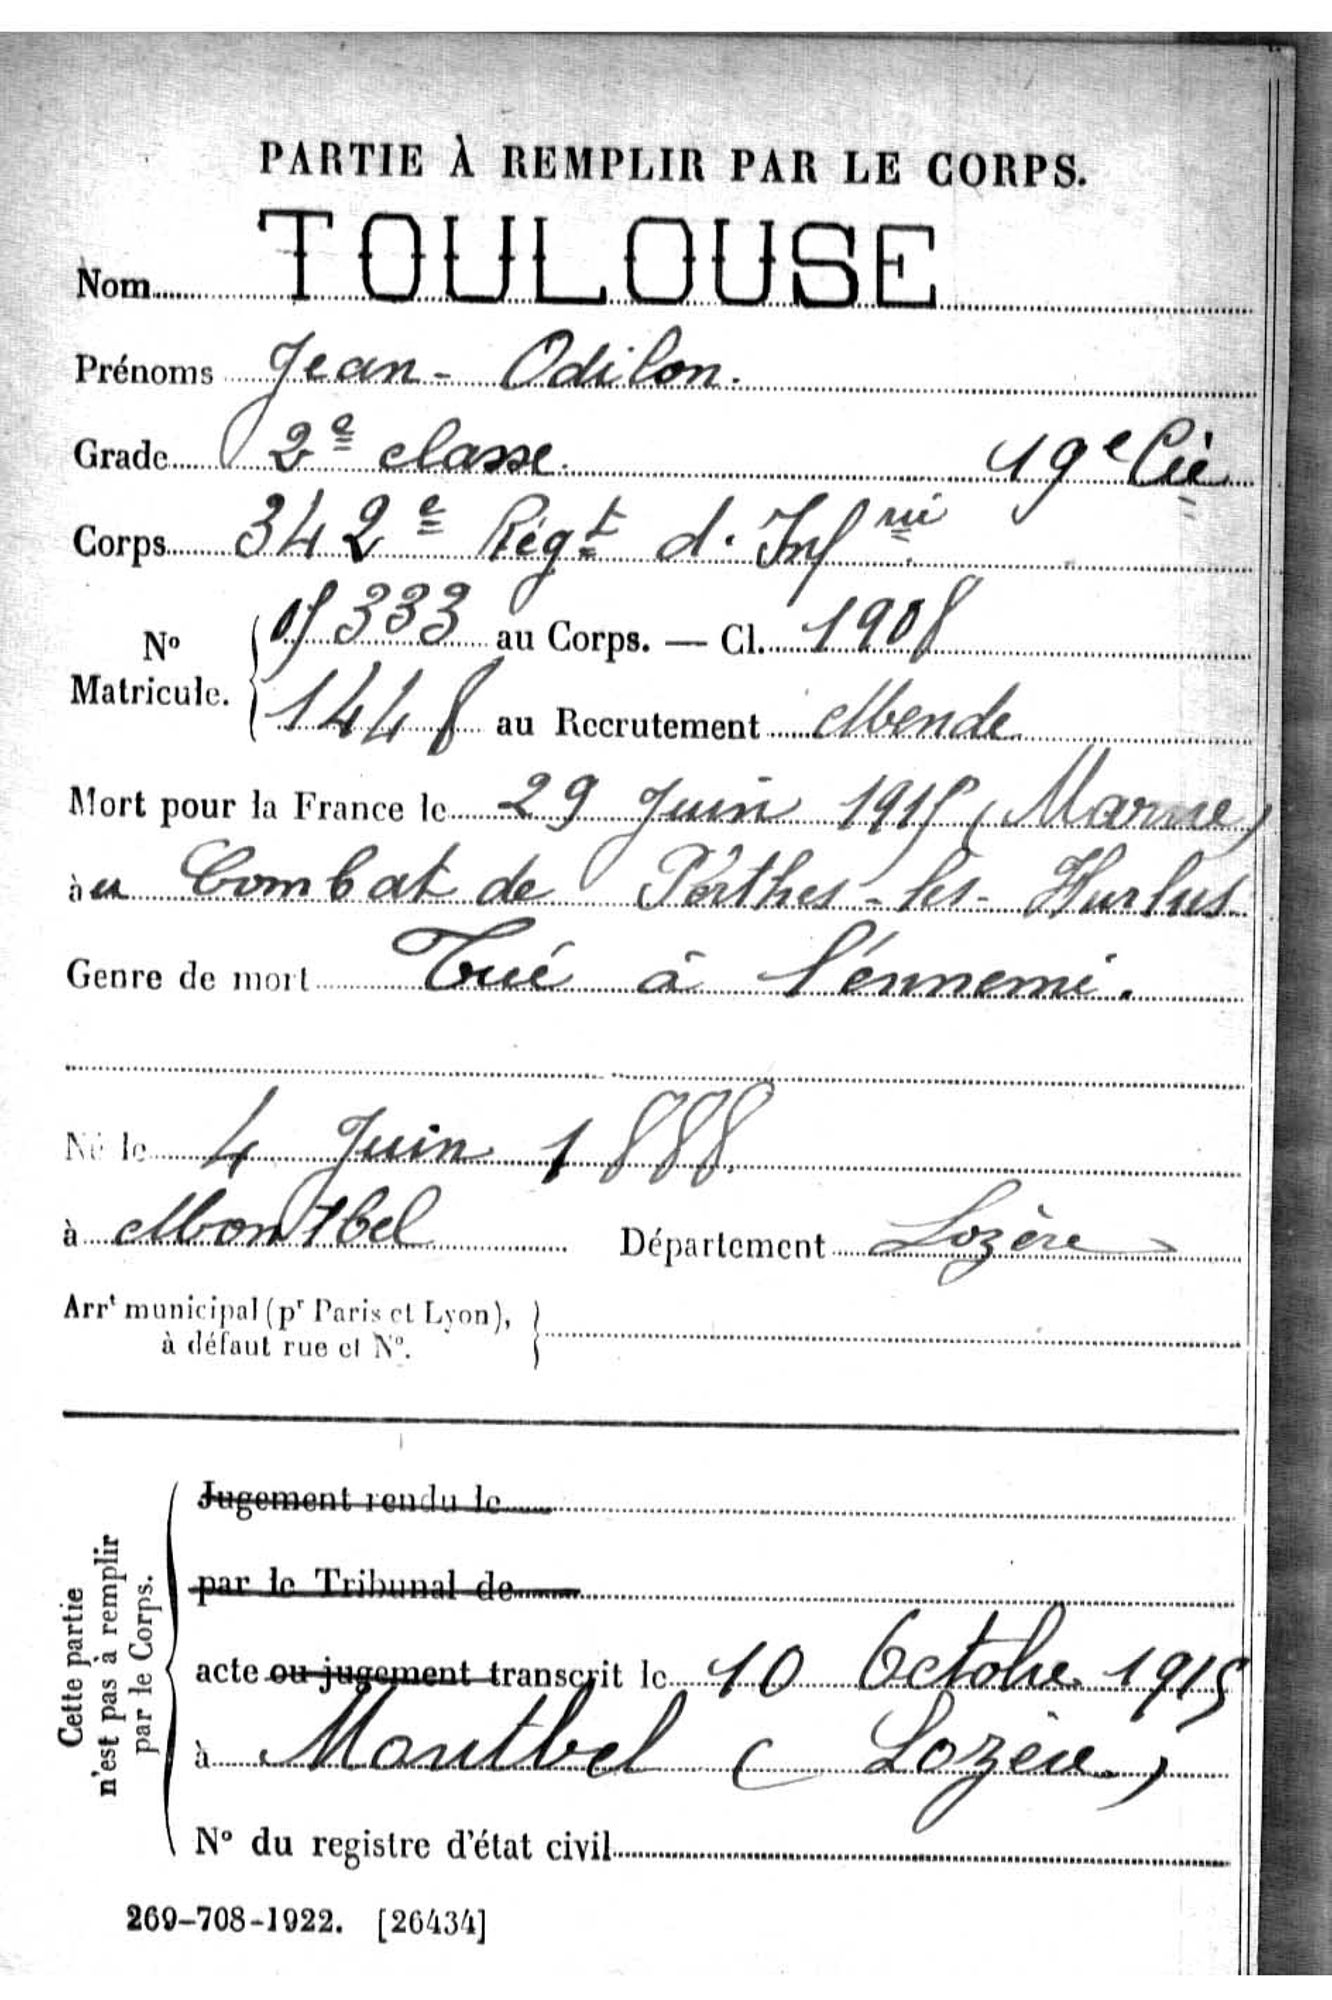 PARTIE À REMPLIR PAR LE CORPS.
Nom TOULOUSE
Prénoms Jean - Odilon.
Grade 2e classe. 19e Cie
Corps 342e Régt d. Infrie
No Matricule. { 333 au Corps. — Cl. 1908
1448 au Recrutement Mende
Mort pour la France le 29 Juin 1915 (Marne)
àu Combat de Perthes-les-Hurlus
Genre de mort Tué à l'énnemi.
Né le 4 Juin 1888
à Montbel Département Lozère
Arrt municipal (pr Paris et Lyon), }
à défaut rue et No.
Cette partie
n'est pas à remplir
par le Corps.
Jugement rendu le
par le Tribunal de
acte ou jugement transcrit le 10 Octobre 1915
à Montbel (Lozère)
No du registre d'état civil
269-708-1922. [26434]